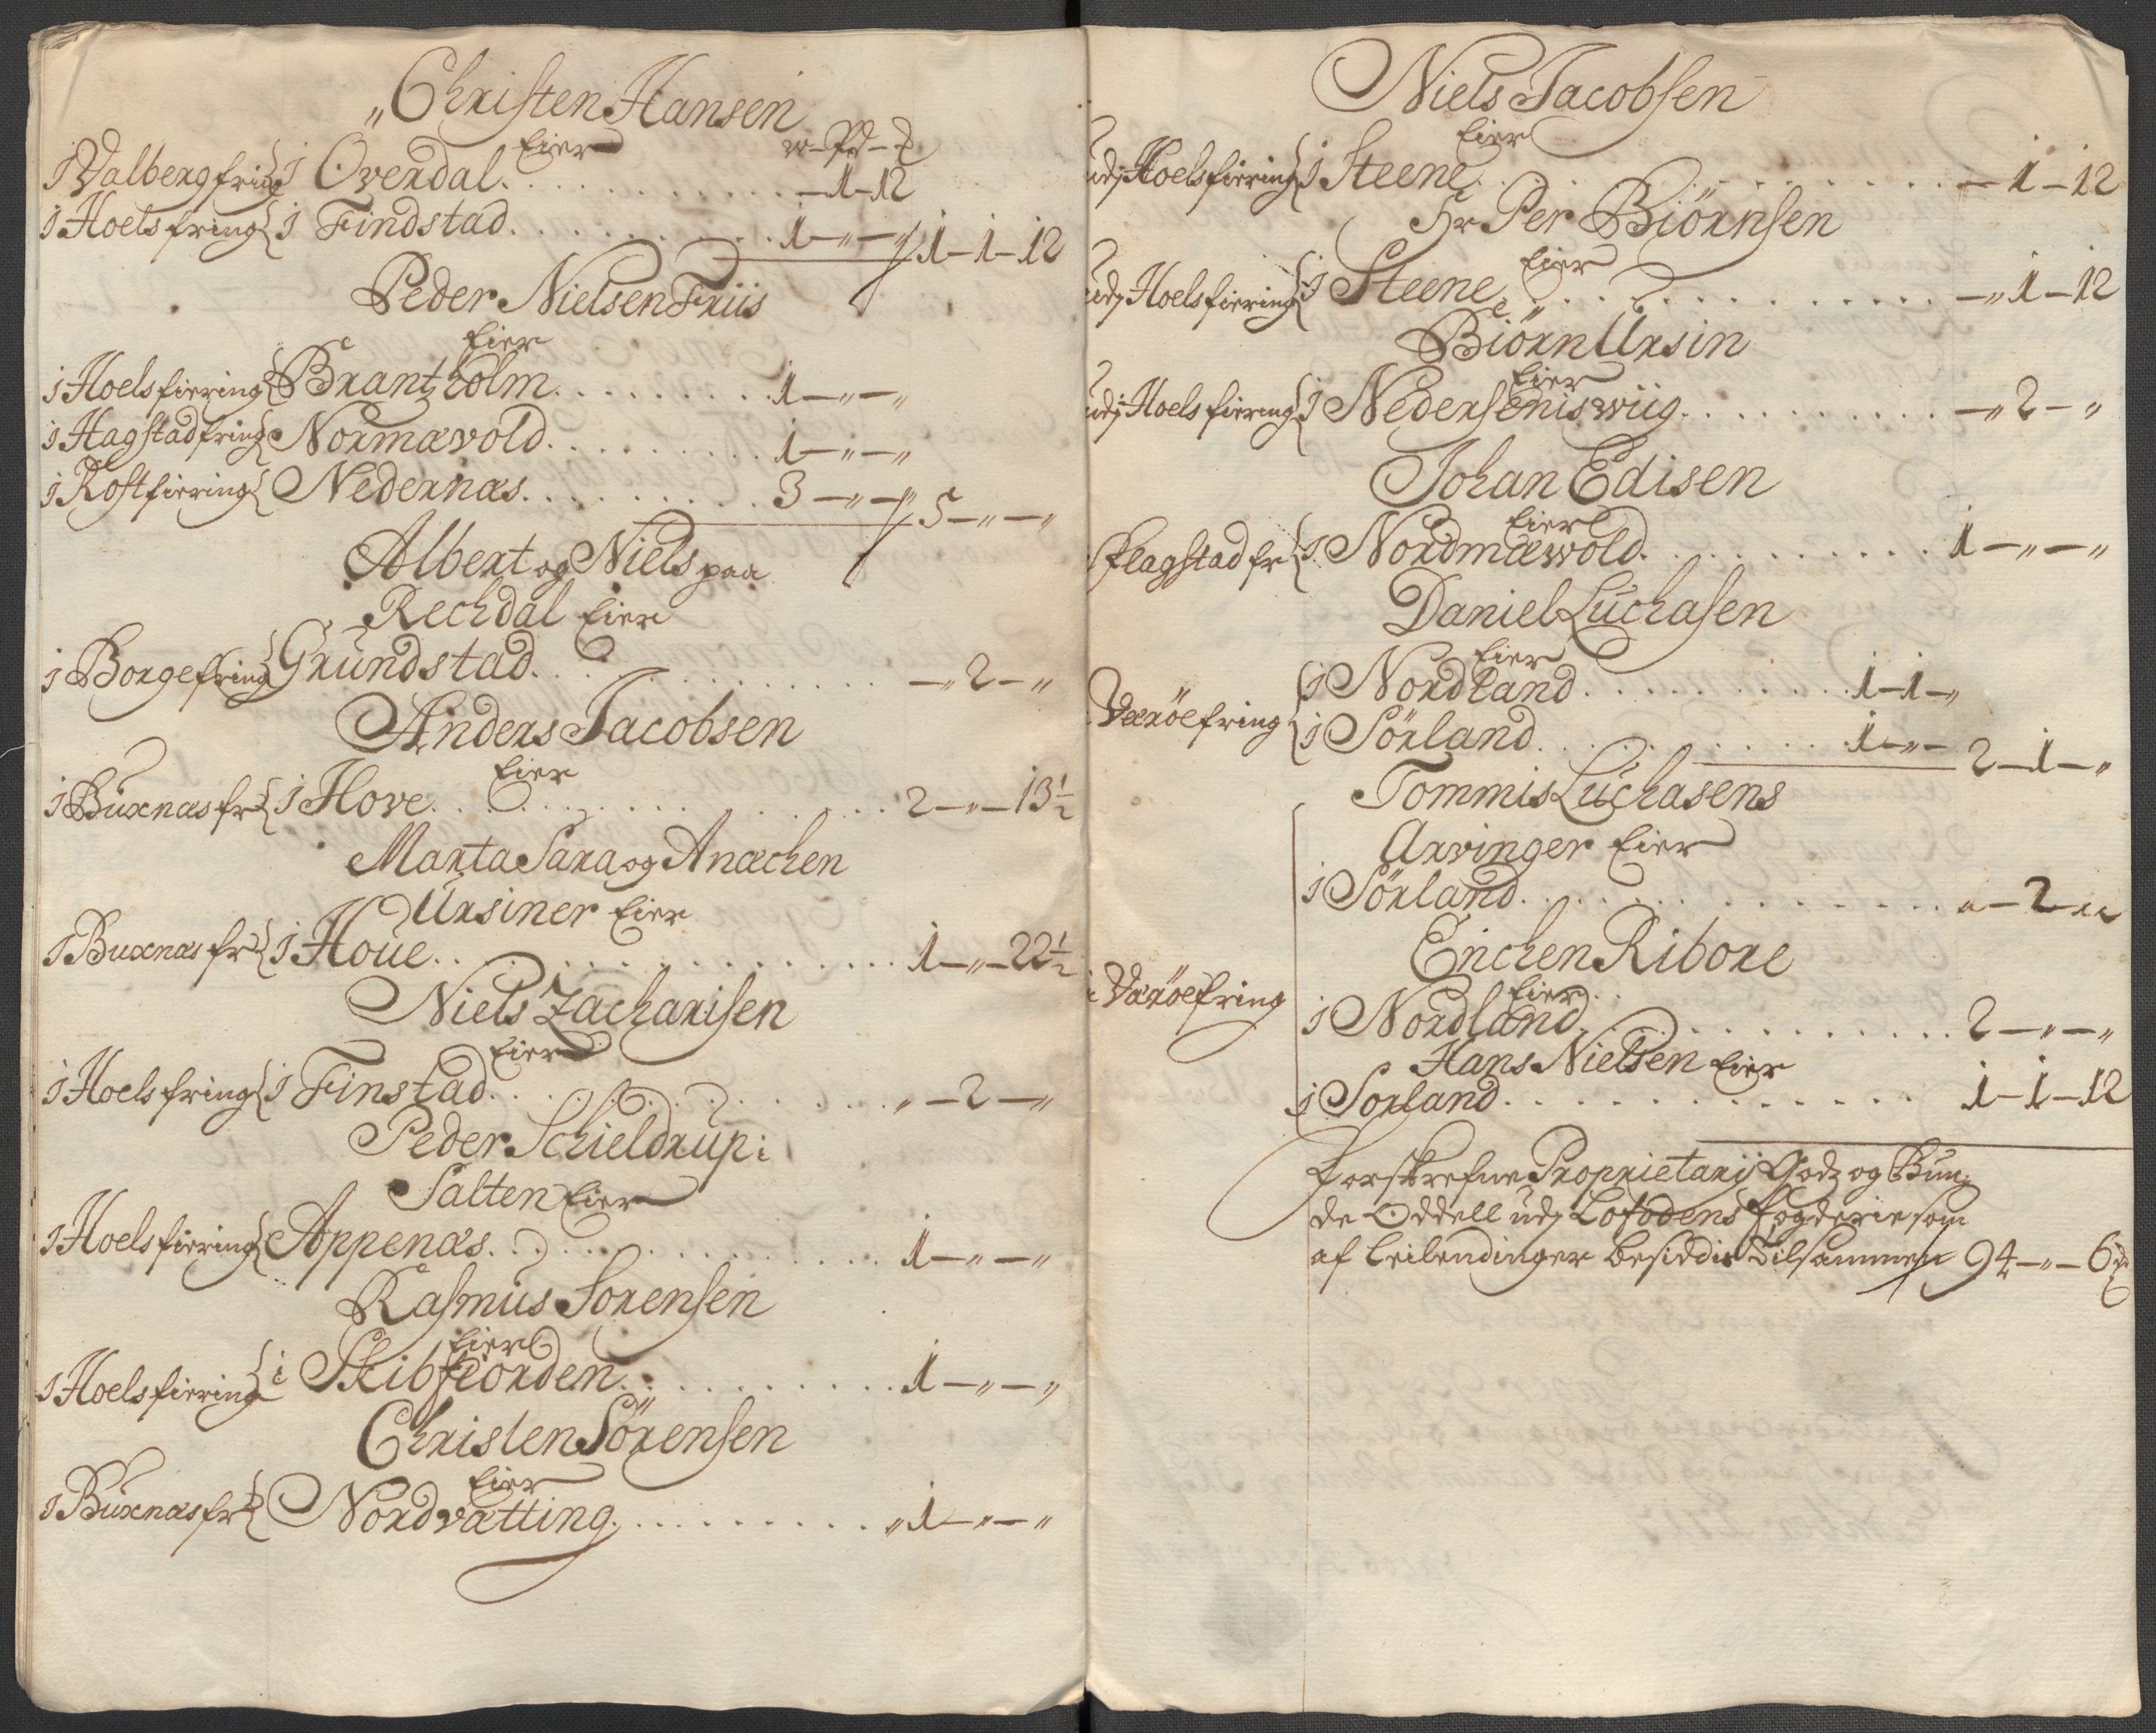 „Christen Hansen
Eier
w – Pd – ₰
J Valbergfring J Overdal . . . – 1 – 12
J Hoelsfring J Findstad . . . 1 – „ – „ 1 – 1 – 12
Peder Nielsen Friis
Eier
j Hoelsfiering Brantholm . . . 1 – „ – „
j Hagstadfring Normævold . . . 1 – „ – „
j Rostfiering Nedernæs . . . 3 – „ – „ 5 – „ – „
Albert og Niels paa
Rechdal Eier
j Borgefring Grundstad . . . – „ 2 – „
Anders Jacobsen
Eier
j Buxnæs fr J Hove . . . 2 – „ – 13½
Marta Sara og Anæchen
Ursiner Eier
J Buxnæs fr J Houe . . . 1 – „ – 22½
Niels Zacharisen
Eier
J Hoelsfring J Finstad . . . „ – 2 – „
Peder Schieldrup i
Salten Eier
J Hoelsfiering Appenæs . . . 1 – „ – „
Rasmus Sorensen
Eier
J Hoelsfiering i Skibfiorden . . . 1 – „ – „
Christen Sörensen
Eier
J Buxnæs fr Nordvatting . . . „ 1 – „ – „
Niels Jacobsen
Eier
udj Hoelsfiering J Steene . . . – 1 – 12
Hr Per Biörnsen
Eier
udj Hoelsfiering J Steene . . . – „ 1 – 12
Biörn Ursin
Eier
udj Hoelsfiering J Nederseniswiig . . . – „ 2 – „
Johan Edisen
Eier
Flagstad fr J Nordmæwold . . . 1 – „ – „
Daniel Luchasen
Eier
Væröefring J Nordland . . . 1 – 1 – „
J Sörland . . . 1 – „ – 2 – 1 – „
Tommis Luchasens
Arvinger Eier
J Sörland . . . „ – 2 – „
Enchen Ribore
Eier
i Væröefring J Nordland . . . 2 – „ – „
Hans Nielsen Eier
j Sorland . . . 1 – 1 – 12
Forskrefne Proprietarij Godz og Bun-
de Oddell udj Lofodens fogderie som
af Leilendinger besiddis Tilsammen 94 – „ – 6